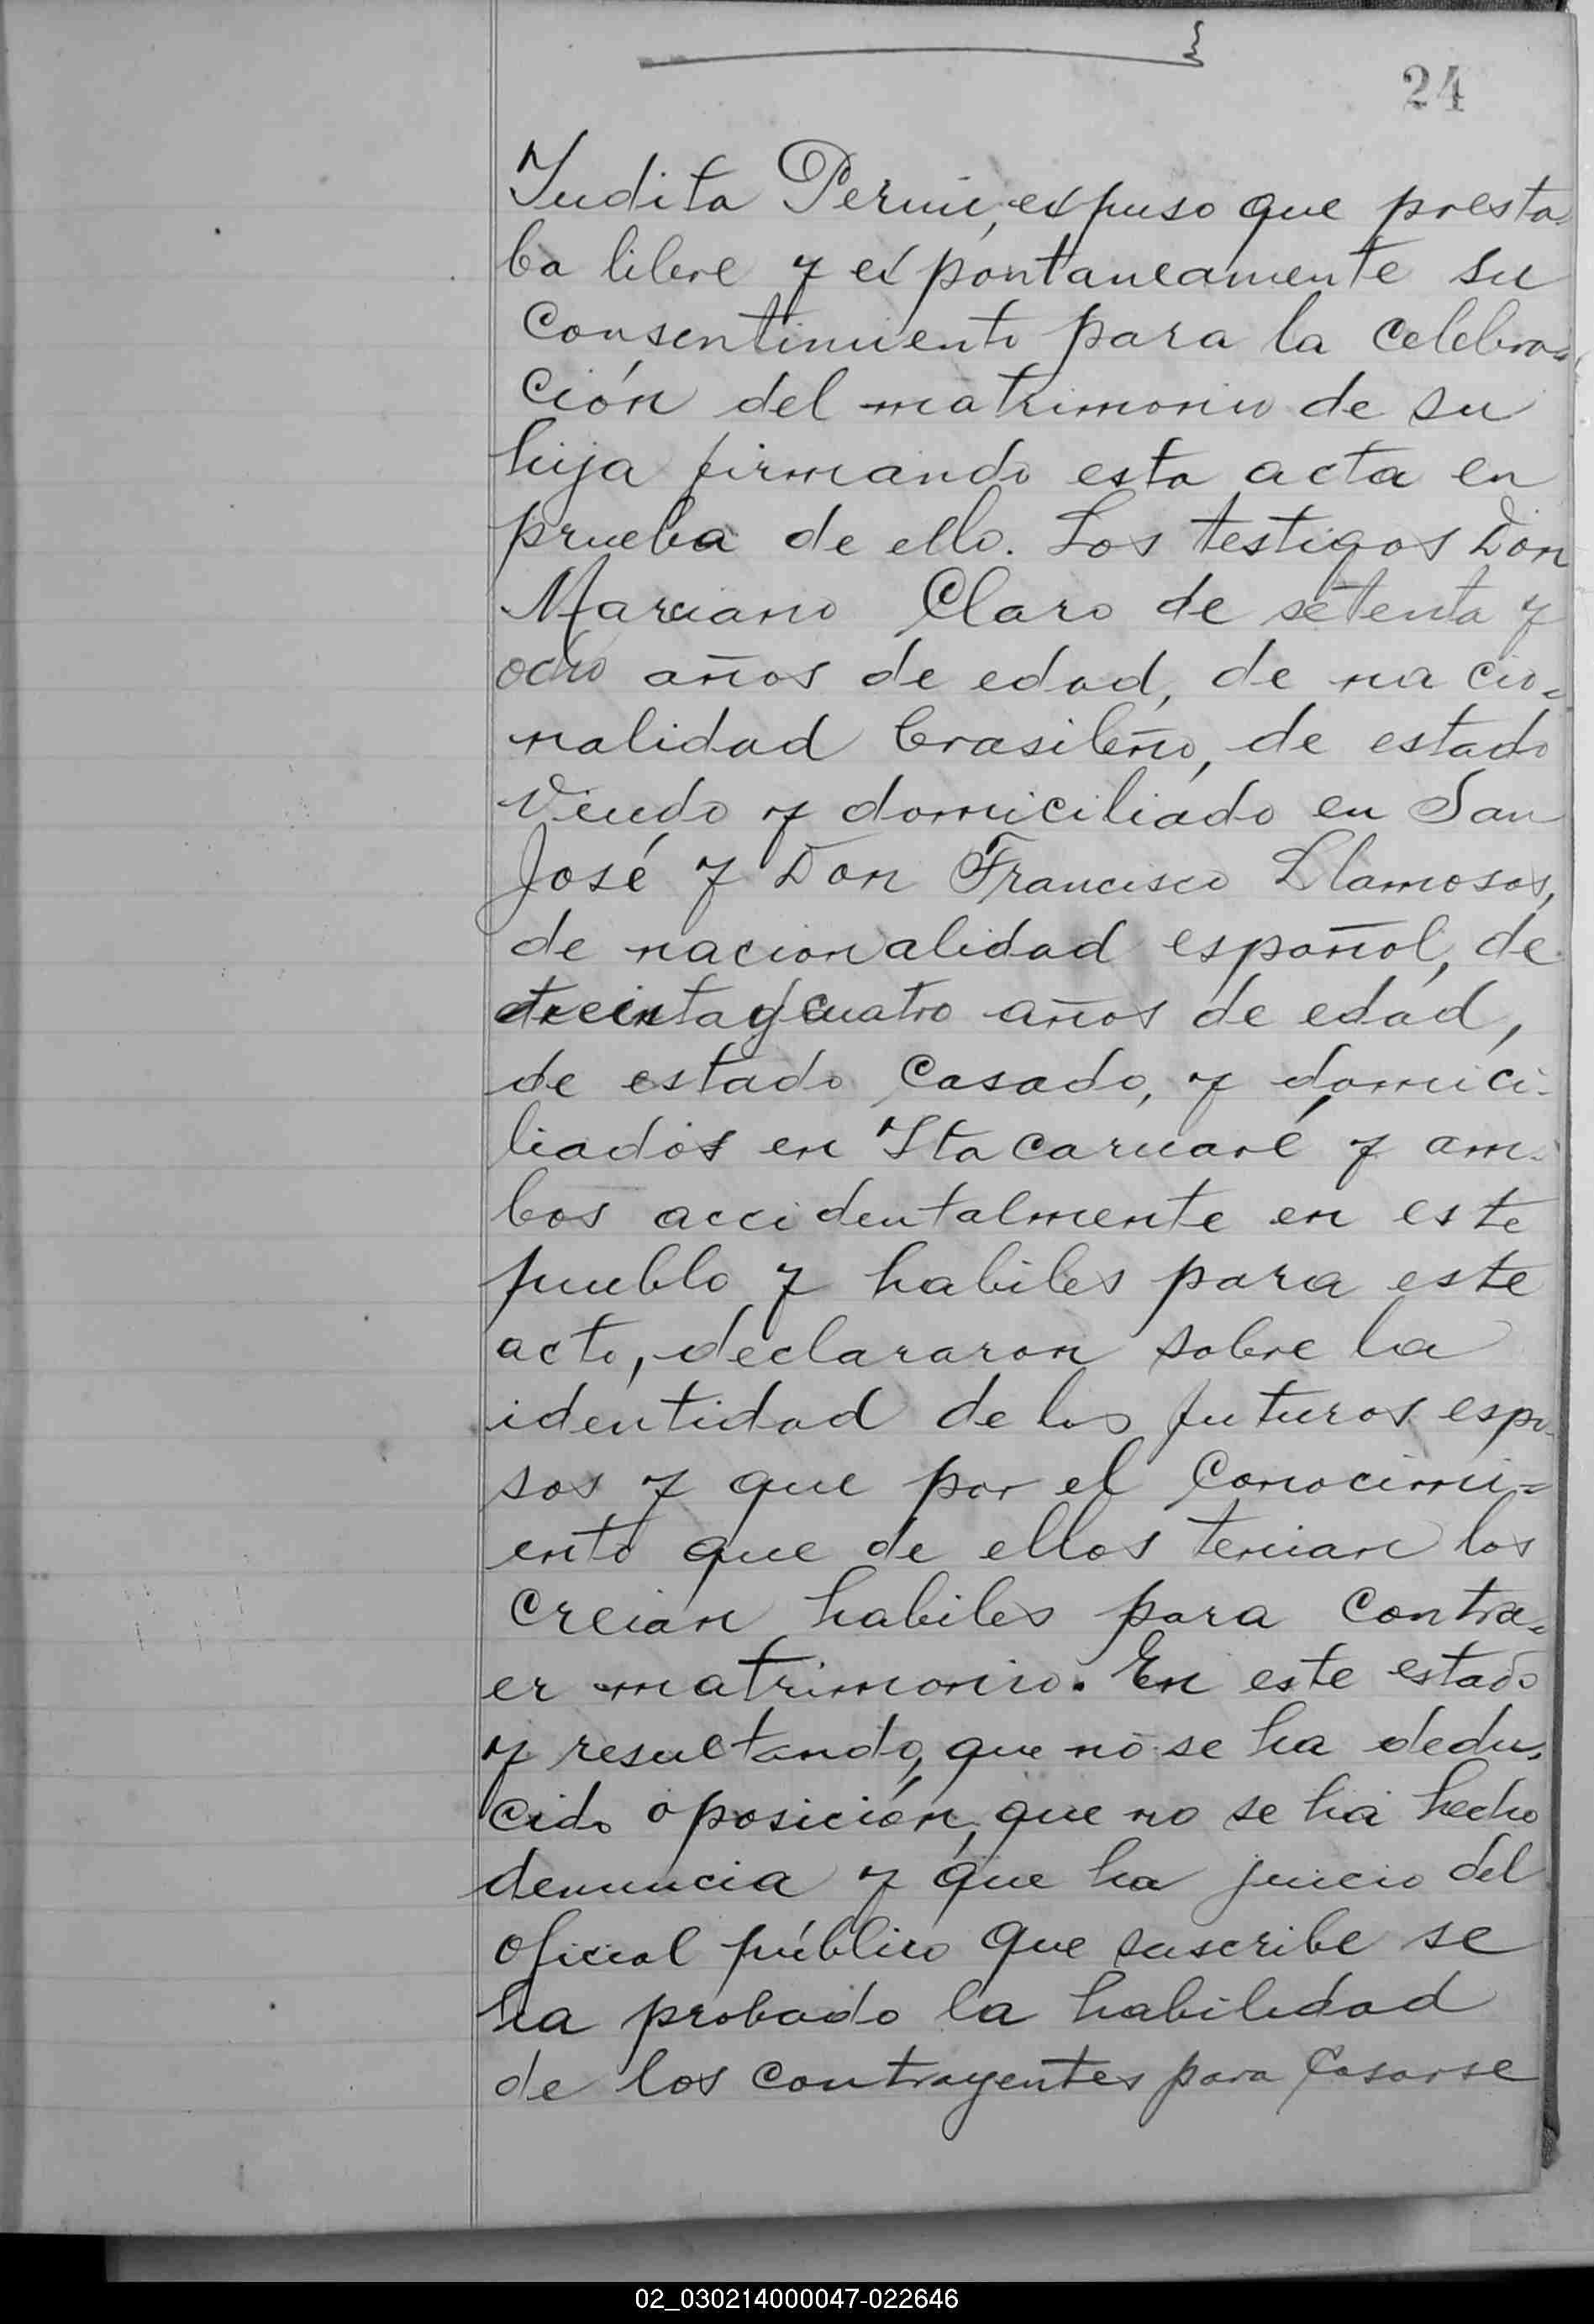 24
Judita Perini, expuso que presta
ba libre y expontaneamente su
consentimiento para la celebra=
ción del matrimonio de su
hija firmando esta acta en
prueba de ello. Los testigos Don
Marciano Claro de setenta y
ocho años de edad, de nacio=
nalidad brasileño, de estado
viudo y domiciliado en San
José y Don Francisco Llamosas,
de nacionalidad español, de
treinta y cuatro años de edad,
de estado casado, y domici-
liados en Itacaruaré y am-
bos accidentalmente en este
pueblo y habiles para este
acto, declararon sobre la
identidad de los futuros espo-
sos y que por el conocimi=
ento que de ellos tenian los
creian habiles para contra=
er matrimonio. En este estado
y resultando, que no se ha dedu-
cido oposición, que no se ha hecho
denuncia y que ha juicio del
oficial público que suscribe se
ha probado la habilidad
de los contrayentes para casarse
02_030214000047-022646